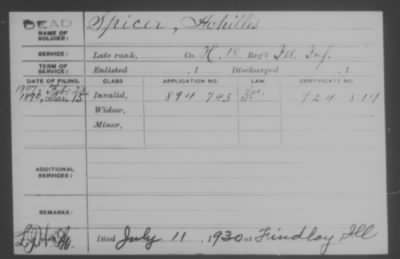 DEAD Spicer, Achilles
NAME OF SOLDIER:
SERVICE: Late rank, Co. H, 18 Reg't Ill. Inf.
TERM OF SERVICE: Enlisted , 1 Discharged , 1
DATE OF FILING. CLASS. APPLICATION NO. LAW. CERTIFICATE NO.
1907 Feb.
Invalid, 894 745 724
Widow,
Minor,
ADDITIONAL SERVICES:
REMARKS:
Died July 11, 1930 at Findlay Ill